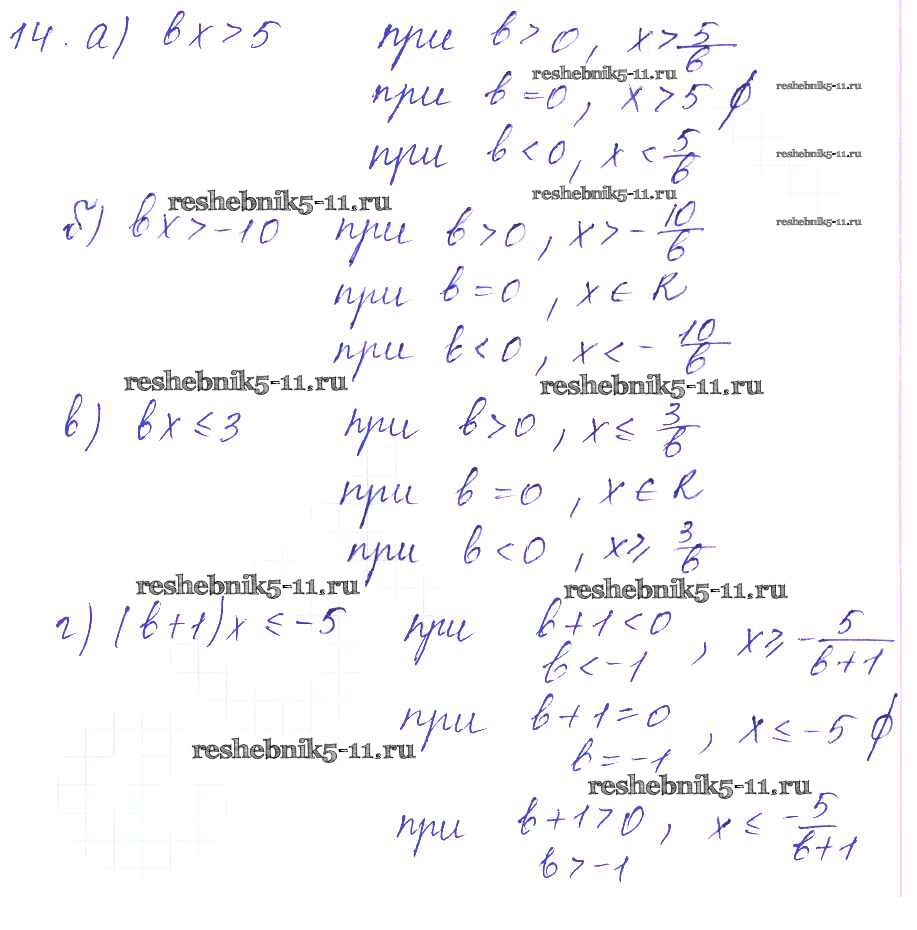 14. а) bx > 5 при b > 0, x > 5/b
reshebnik5-11.ru
при b = 0, x > 5 ∅
reshebnik5-11.ru
при b < 0, x < 5/b
reshebnik5-11.ru
reshebnik5-11.ru
reshebnik5-11.ru
б) bx > -10 при b > 0, x > - 10/b
reshebnik5-11.ru
при b = 0, x ∈ R
при b < 0, x < - 10/b
reshebnik5-11.ru
reshebnik5-11.ru
в) bx ≤ 3 при b > 0, x ≤ 3/b
при b = 0, x ∈ R
при b < 0, x ≥ 3/b
reshebnik5-11.ru
reshebnik5-11.ru
г) (b+1)x ≤ -5 при b+1 < 0, x ≥ - 5/(b+1)
b < -1
при b+1 = 0, x ≤ -5 ∅
b = -1
reshebnik5-11.ru
reshebnik5-11.ru
при b+1 > 0, x ≤ - 5/(b+1)
b > -1